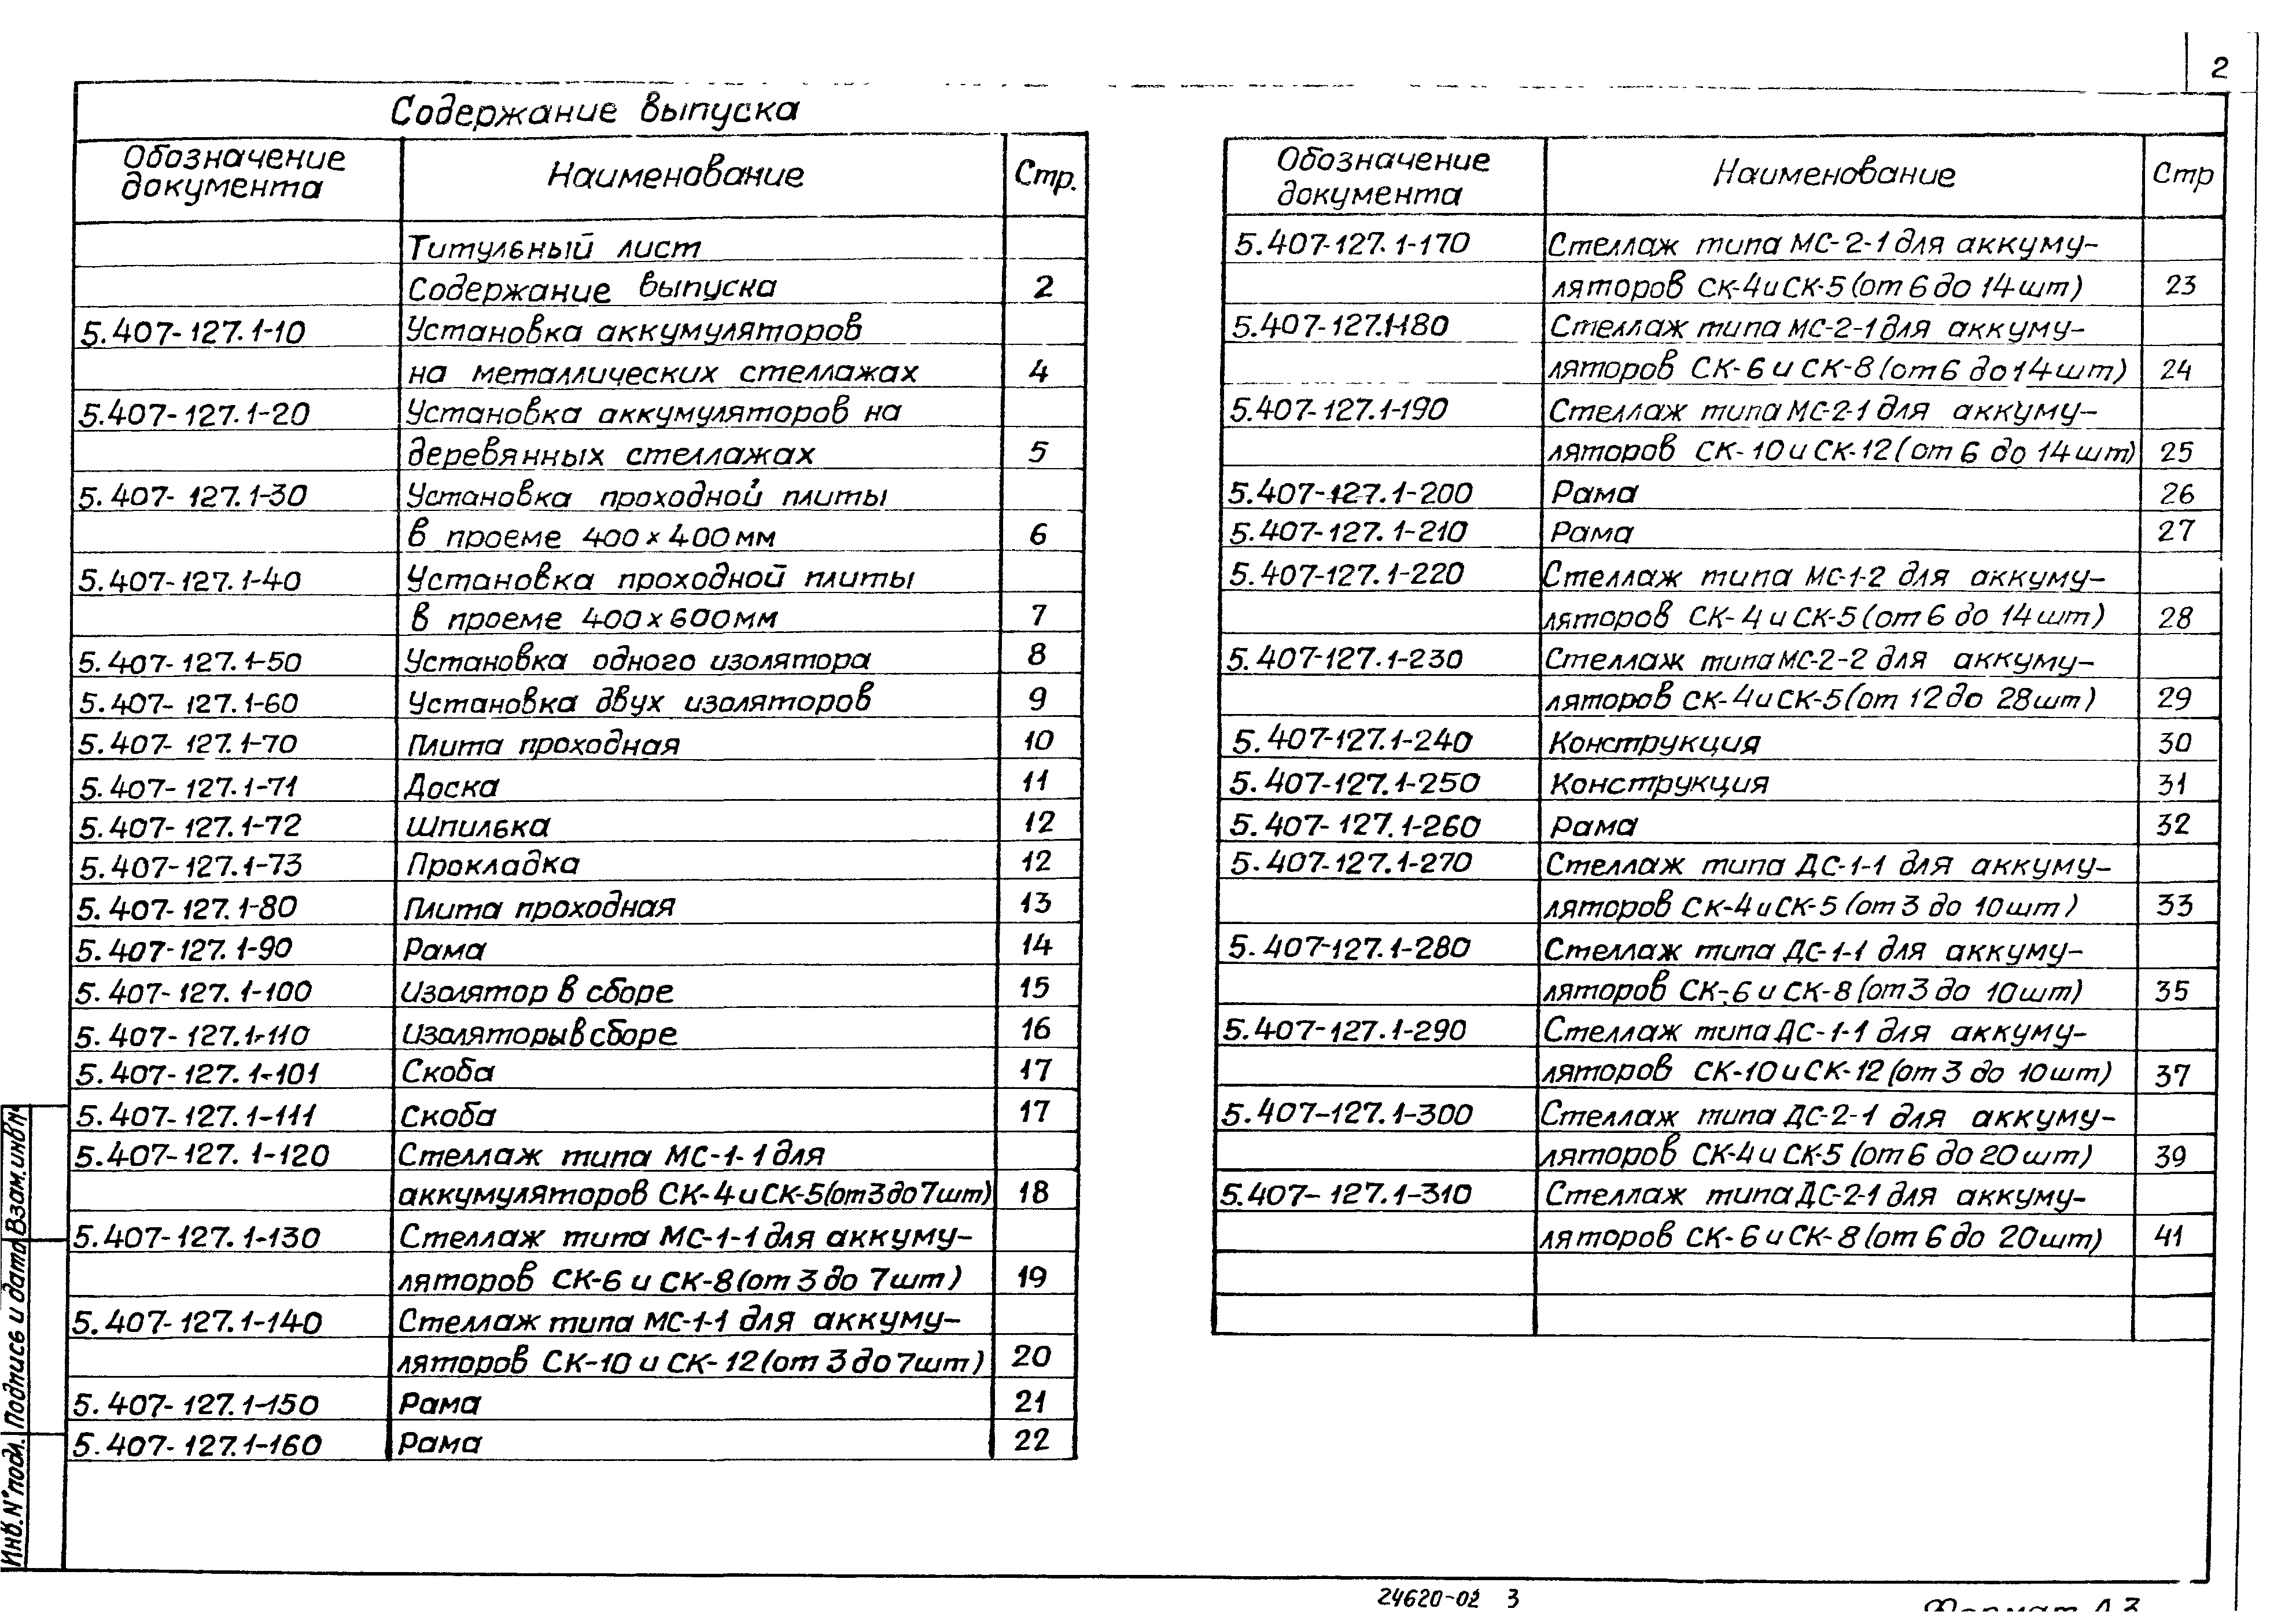 2
Содержание выпуска
Обозначение документа Наименование Стр.
Титульный лист
Содержание выпуска 2
5.407-127.1-10 Установка аккумуляторов
на металлических стеллажах 4
5.407-127.1-20 Установка аккумуляторов на
деревянных стеллажах 5
5.407-127.1-30 Установка проходной плиты
в проеме 400×400мм 6
5.407-127.1-40 Установка проходной плиты
в проеме 400×600мм 7
5.407-127.1-50 Установка одного изолятора 8
5.407-127.1-60 Установка двух изоляторов 9
5.407-127.1-70 Плита проходная 10
5.407-127.1-71 Доска 11
5.407-127.1-72 Шпилька 12
5.407-127.1-73 Прокладка 12
5.407-127.1-80 Плита проходная 13
5.407-127.1-90 Рама 14
5.407-127.1-100 Изолятор в сборе 15
5.407-127.1-110 Изоляторы в сборе 16
5.407-127.1-101 Скоба 17
5.407-127.1-111 Скоба 17
5.407-127.1-120 Стеллаж типа МС-1-1 для
аккумуляторов СК-4 и СК-5 (от 3 до 7шт) 18
5.407-127.1-130 Стеллаж типа МС-1-1 для аккуму-
ляторов СК-6 и СК-8 (от 3 до 7шт) 19
5.407-127.1-140 Стеллаж типа МС-1-1 для аккуму-
ляторов СК-10 и СК-12 (от 3 до 7шт) 20
5.407-127.1-150 Рама 21
5.407-127.1-160 Рама 22
Обозначение документа Наименование Стр
5.407-127.1-170 Стеллаж типа МС-2-1 для аккуму-
ляторов СК-4 и СК-5 (от 6 до 14шт) 23
5.407-127.1-180 Стеллаж типа МС-2-1 для аккуму-
ляторов СК-6 и СК-8 (от 6 до 14шт) 24
5.407-127.1-190 Стеллаж типа МС-2-1 для аккуму-
ляторов СК-10 и СК-12 (от 6 до 14шт) 25
5.407-127.1-200 Рама 26
5.407-127.1-210 Рама 27
5.407-127.1-220 Стеллаж типа МС-1-2 для аккуму-
ляторов СК-4 и СК-5 (от 6 до 14шт) 28
5.407-127.1-230 Стеллаж типа МС-2-2 для аккуму-
ляторов СК-4 и СК-5 (от 12 до 28шт) 29
5.407-127.1-240 Конструкция 30
5.407-127.1-250 Конструкция 31
5.407-127.1-260 Рама 32
5.407-127.1-270 Стеллаж типа ДС-1-1 для аккуму-
ляторов СК-4 и СК-5 (от 3 до 10шт) 33
5.407-127.1-280 Стеллаж типа ДС-1-1 для аккуму-
ляторов СК-6 и СК-8 (от 3 до 10шт) 35
5.407-127.1-290 Стеллаж типа ДС-1-1 для аккуму-
ляторов СК-10 и СК-12 (от 3 до 10шт) 37
5.407-127.1-300 Стеллаж типа ДС-2-1 для аккуму-
ляторов СК-4 и СК-5 (от 6 до 20шт) 39
5.407-127.1-310 Стеллаж типа ДС-2-1 для аккуму-
ляторов СК-6 и СК-8 (от 6 до 20шт) 41
Инв.N°подл. Подпись и дата Взам.инв.N
24620-02 3
Формат А3